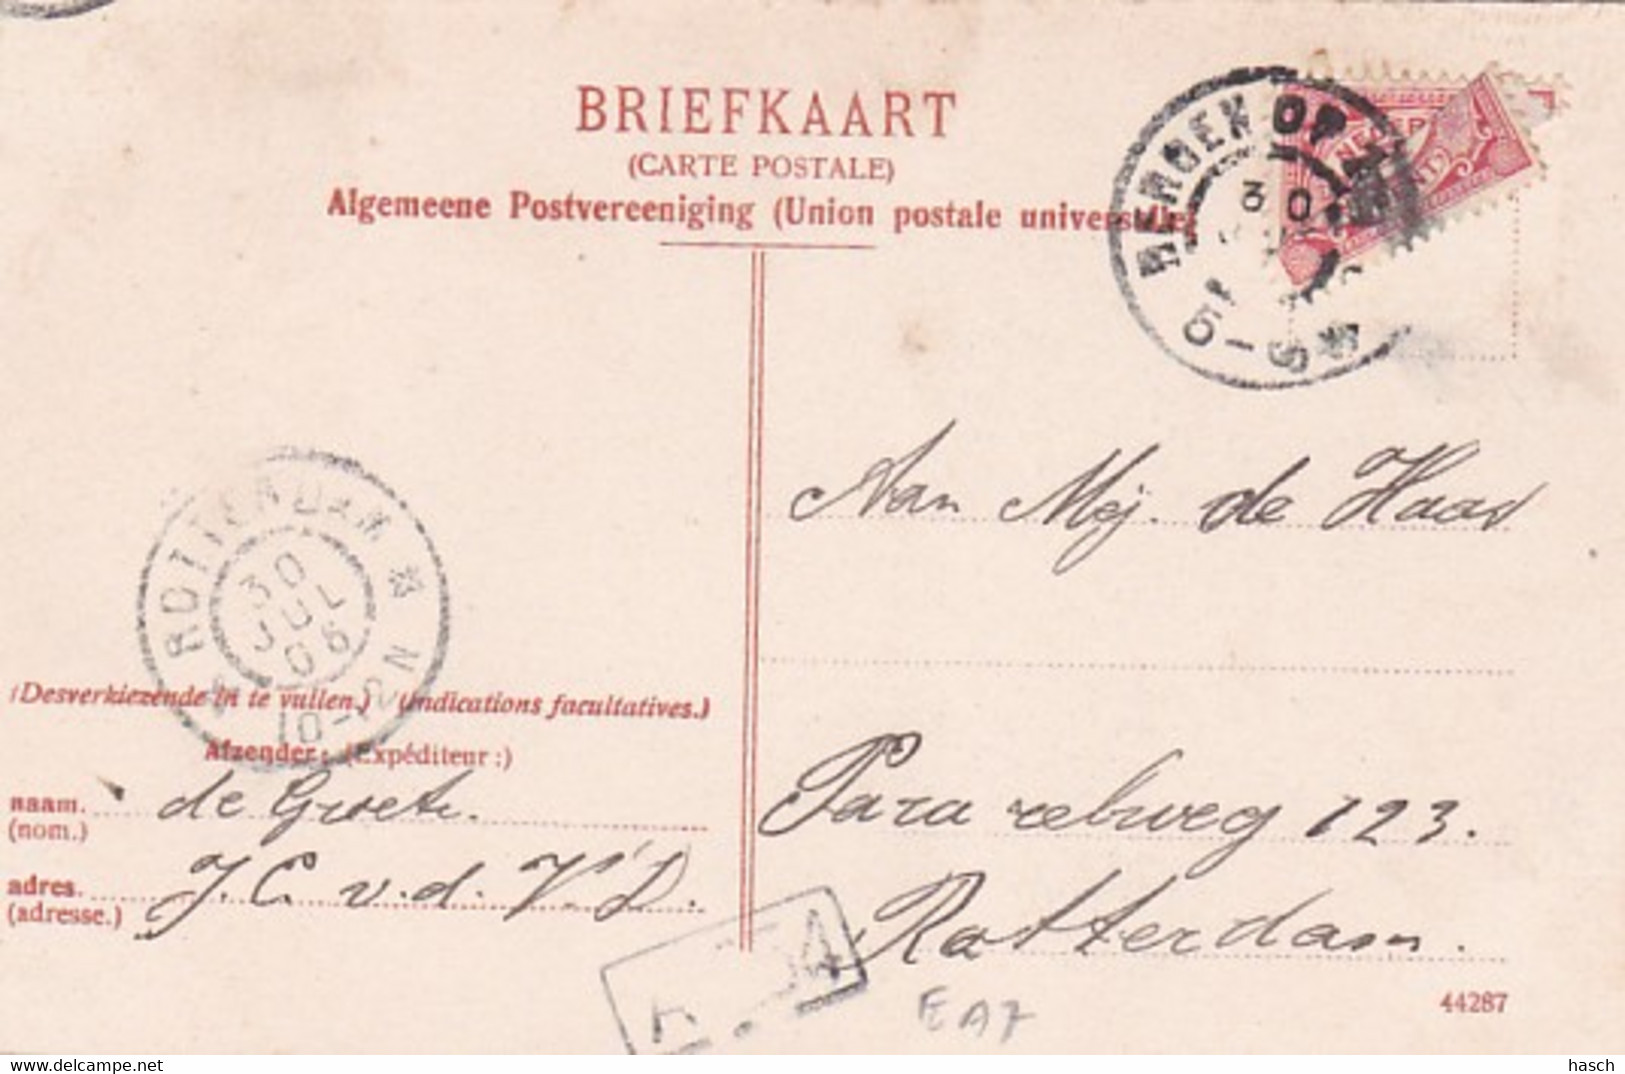 BRIEFKAART
(CARTE POSTALE)
Algemeene Postvereeniging (Union postale universelle)
BERGEN OP
30
5-6 S
NEDER
Aan Mej. de Haas
ROTTERDAM
30
JUL
06
10-12 N
(Desverkiezende in te vullen.) (Indications facultatives.)
Afzender: (Expéditeur:)
naam. de Groete.
(nom.)
adres. J. C. v. d. V'd.
(adresse.)
123.
Rotterdam.
44287
EA7
hasch
www.delcampe.net